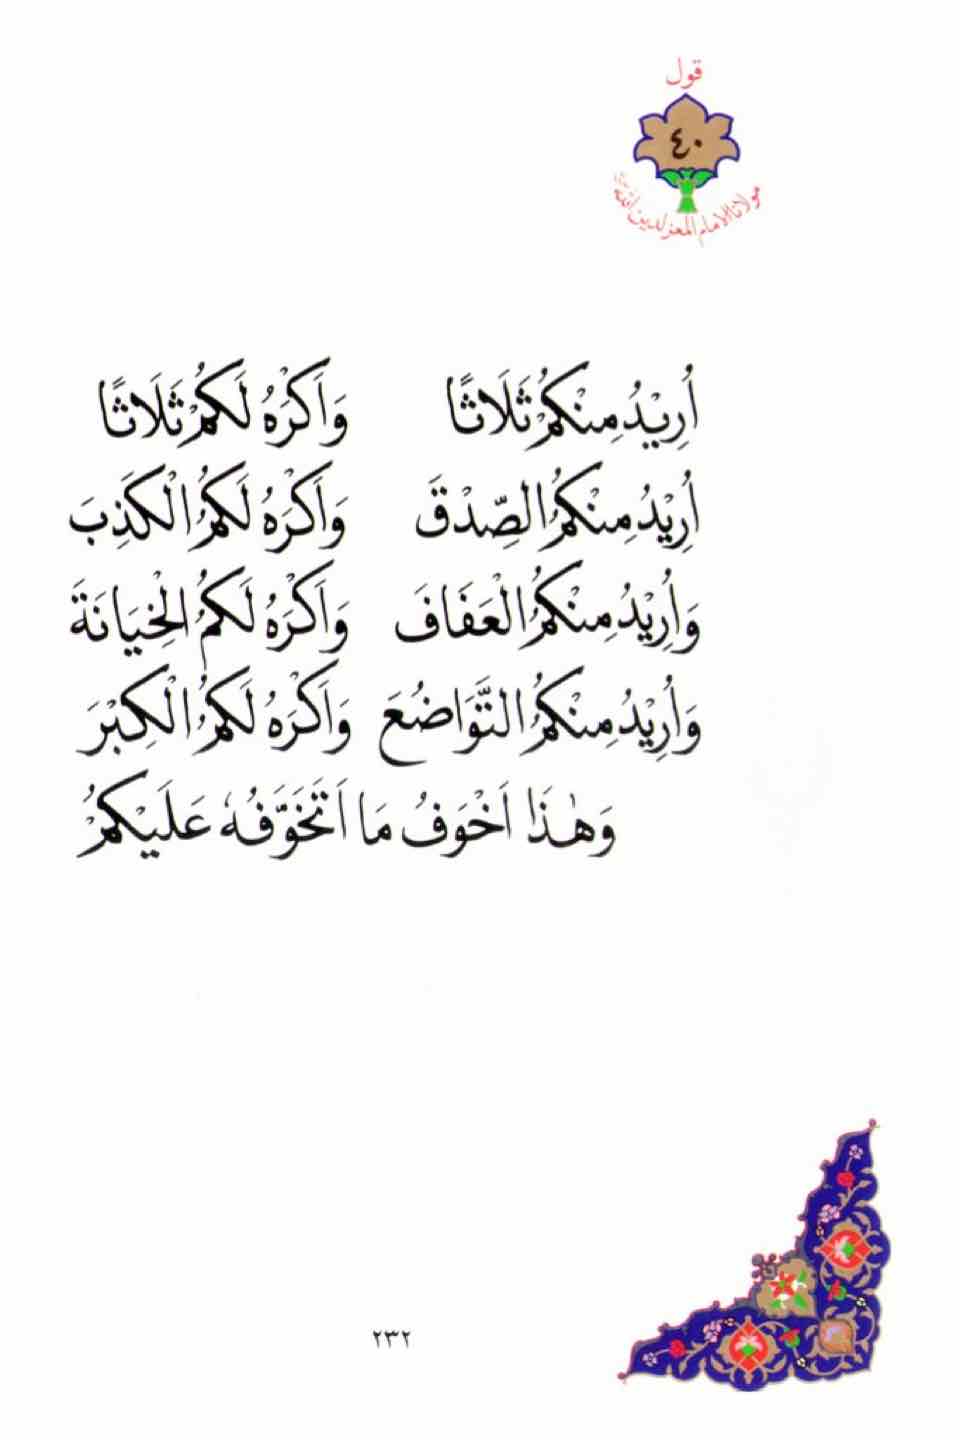 قول
٤٠
مولانا الامام المعز لدين الله
اُرِيْدُ مِنْكُمْ ثَلَاثًا وَاَكْرَهُ لَكُمْ ثَلَاثًا
اُرِيْدُ مِنْكُمُ الصِّدْقَ وَاَكْرَهُ لَكُمُ الْكَذِبَ
وَاُرِيْدُ مِنْكُمُ الْعَفَافَ وَاَكْرَهُ لَكُمُ الْخِيَانَةَ
وَاُرِيْدُ مِنْكُمُ التَّوَاضُعَ وَاَكْرَهُ لَكُمُ الْكِبْرَ
وَهٰذَا اَخْوَفُ مَا اَتَخَوَّفُهٗ عَلَيْكُمْ
٢٣٢